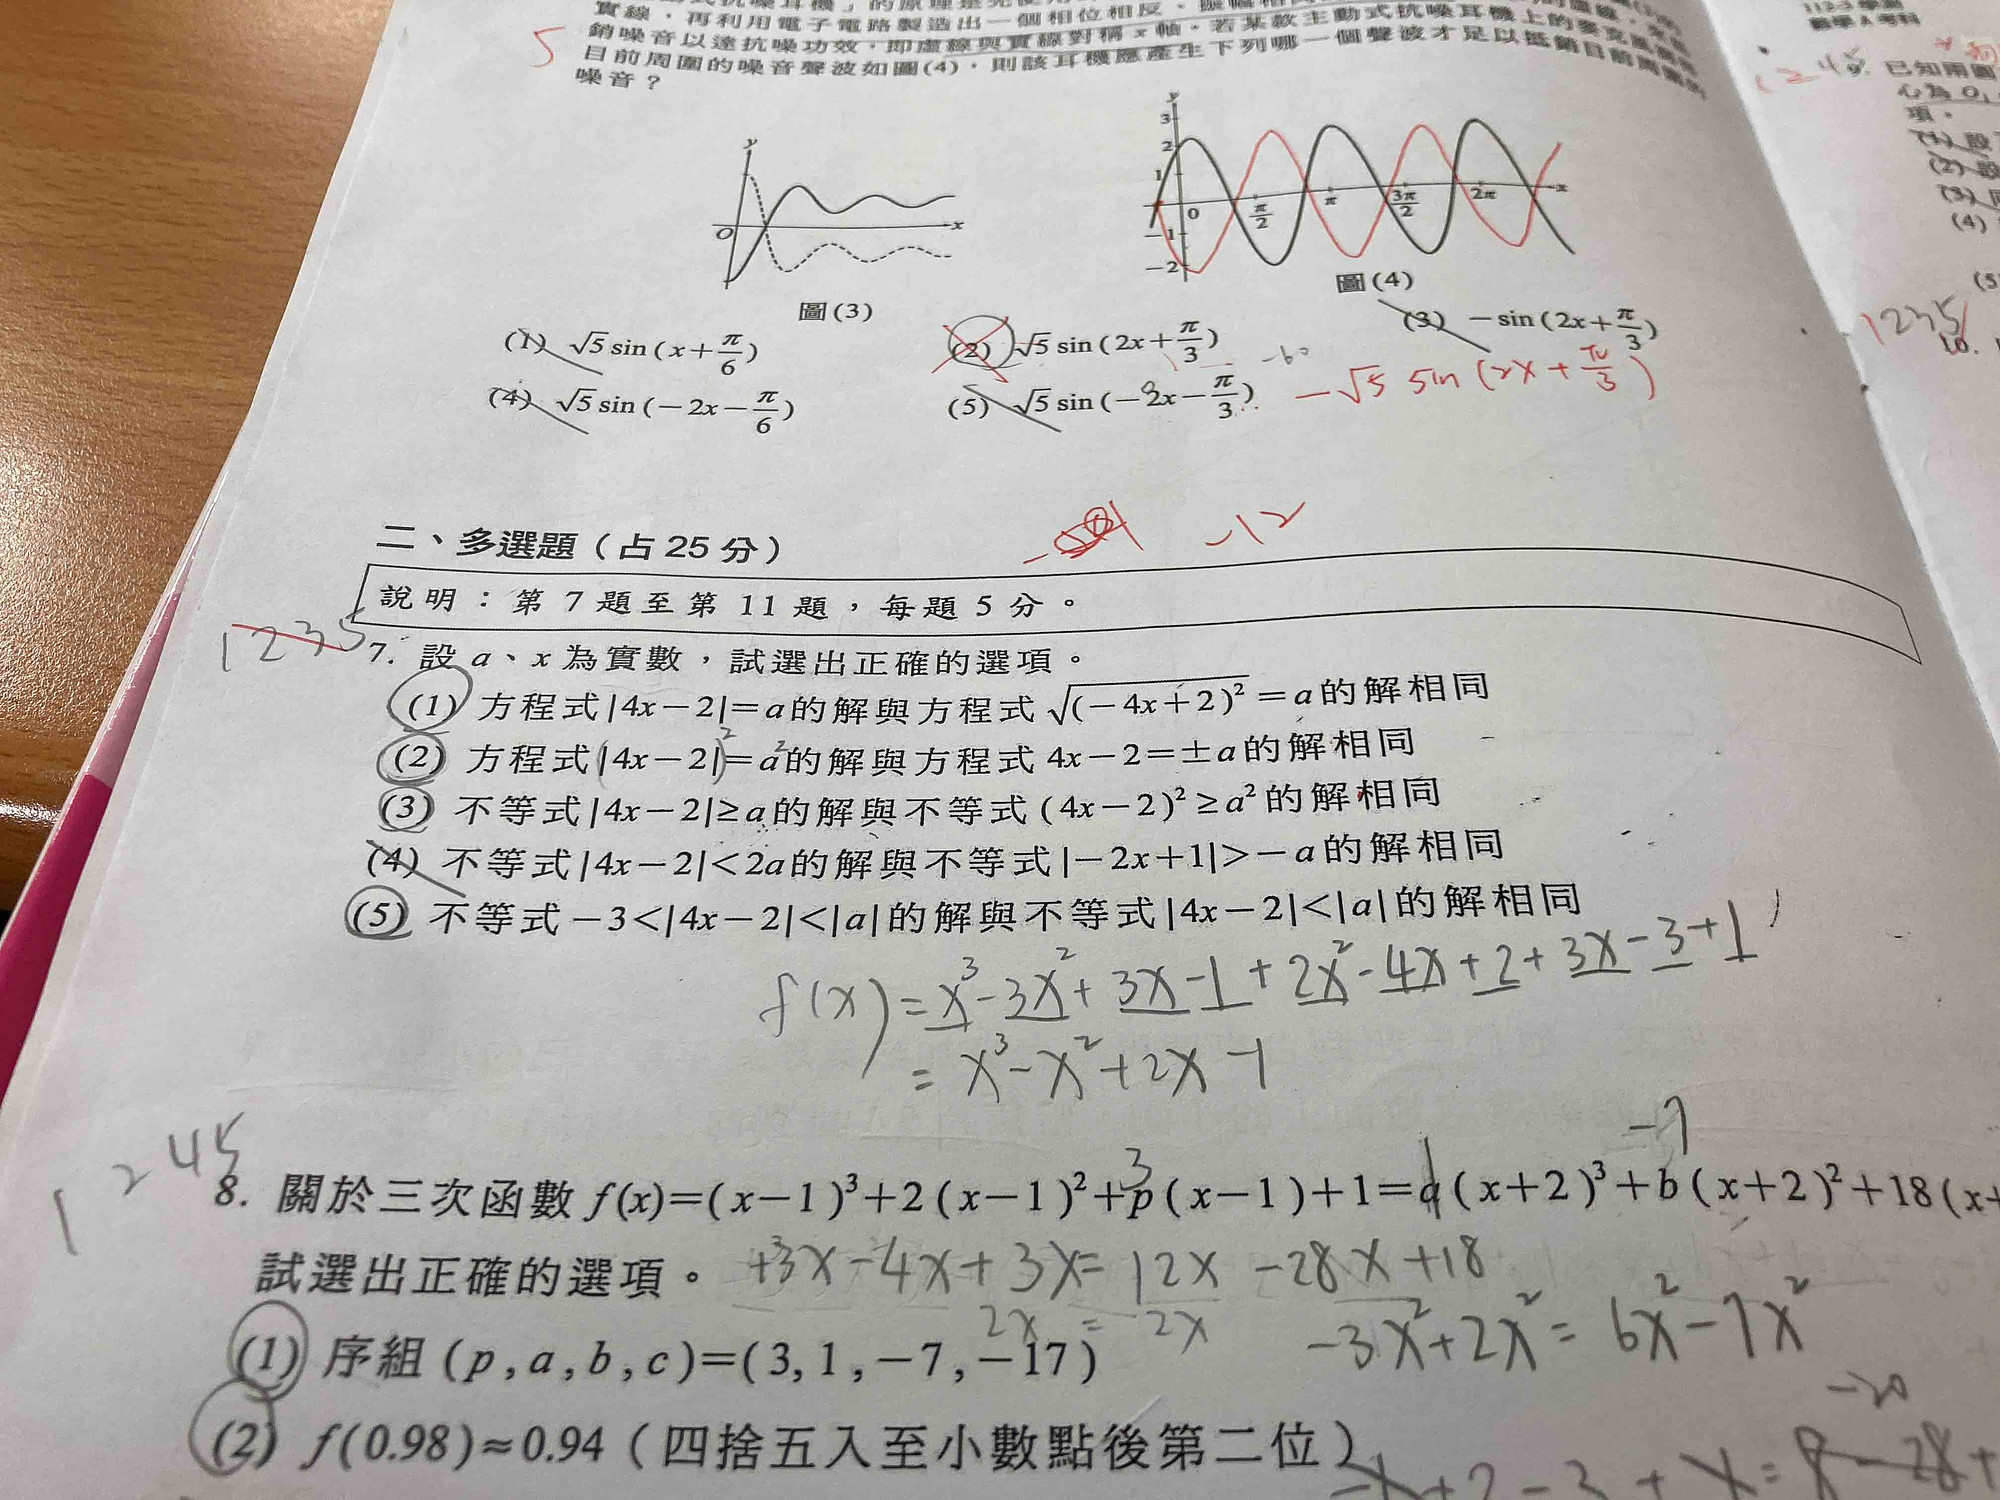 實線，再利用電子電路製造出一個相位相反、
銷噪音以達抗噪功效，即虛線與實線對稱 x 軸。若某款主動式抗噪耳機上的麥克風
5
目前周圍的噪音聲波如圖(4)，則該耳機應產生下列哪一個聲波才足以抵銷目前周圍的
噪音？
y
O
x
圖(3)
y
3
2
1
0
-1
-2
π/2
π
3π/2
2π
x
圖(4)
(1) √5 sin(x+π/6)
(2) √5 sin(2x+π/3)
(3) -sin(2x+π/3)
(4) √5 sin(-2x-π/6)
(5) √5 sin(-2x-π/3)
-√5 sin(2x+π/3)
-12
二、多選題（占 25 分）
說明：第 7 題至第 11 題，每題 5 分。
1235
7. 設 a、x 為實數，試選出正確的選項。
(1) 方程式|4x-2|=a的解與方程式 √(-4x+2)² =a的解相同
(2) 方程式|4x-2|²=a²的解與方程式 4x-2=±a的解相同
(3) 不等式|4x-2|≥a的解與不等式(4x-2)²≥a²的解相同
(4) 不等式|4x-2|<2a的解與不等式|-2x+1|>-a的解相同
(5) 不等式-3<|4x-2|<|a|的解與不等式|4x-2|<|a|的解相同
f(x)=x³-3x²+3x-1+2x²-4x+2+3x-3+1
=x³-x²+2x-1
1245
3
1
-7
8. 關於三次函數 f(x)=(x-1)³+2(x-1)²+p(x-1)+1=a(x+2)³+b(x+2)²+18(x+
試選出正確的選項。
+3x-4x+3x=12x-28x+18
2x=2x
-3x²+2x²=6x²-7x²
(1) 序組(p,a,b,c)=(3,1,-7,-17)
-20
(2) f(0.98)≈0.94（四捨五入至小數點後第二位）
數學 A 考科
1245
9. 已知兩圖
心為 O₁
項。
(1) 設
(2) 設
(3)
(4)
(5
1235
10.